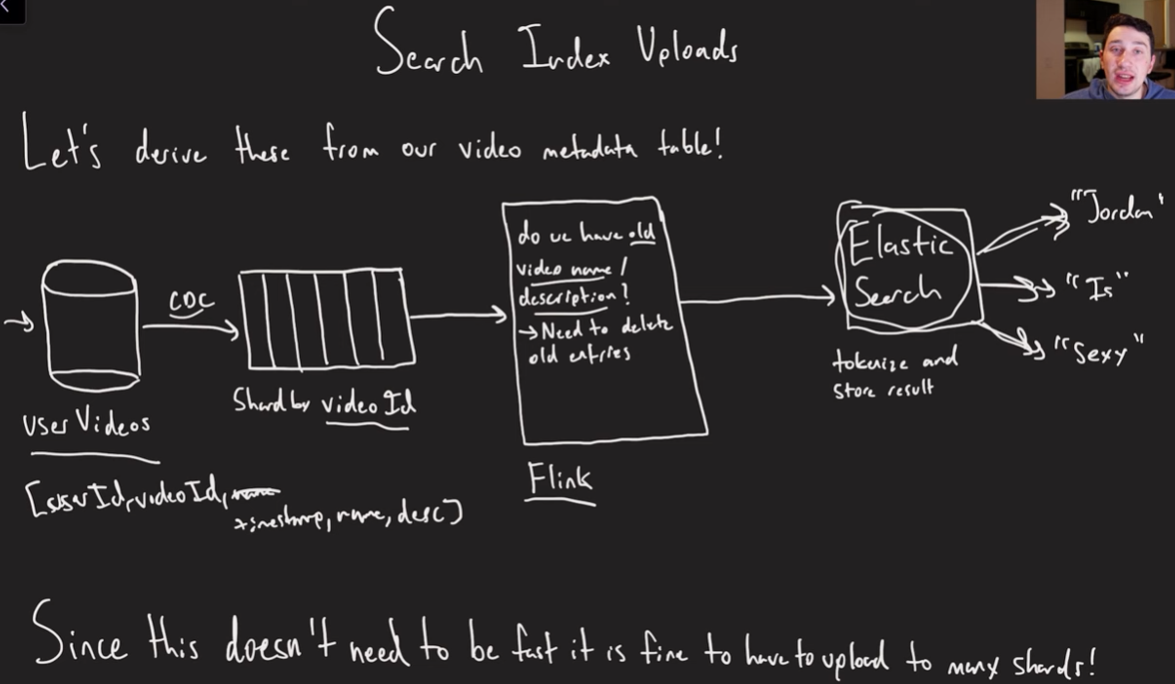 Search Index Uploads
Let's derive these from our video metadata table!
CDC
User Videos
[userId, videoId, name
timestamp, name, desc]
Shard by video Id
do we have old
video name /
description?
→ Need to delete
old entries
Flink
Elastic
Search
tokenize and
store result
"Jordan"
"Is"
"Sexy"
Since this doesn't need to be fast it is fine to have to upload to many shards!